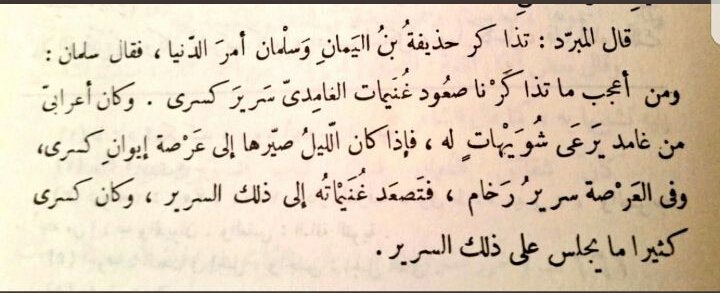 قال المبرّد : تذاكر حذيفةُ بنُ اليَمانِ وَسلْمان أمرَ الدّنيا ، فقال سلمان :
ومن أعجب ما تذاكَرْنا صعُود غُنَيمات الغامِدىّ سَريرَ كسرى . وكان أعرابىّ
من غامد يَرعَى شُوَيْهاتٍ له ، فإذا كان اللّيلُ صيّرها إلى عَرْصة إيوانِ كسرى ،
وفى العَرْصة سريرُ رَخام ، فتَصعَد غُنَيْماتُه إلى ذلك السرير ، وكان كسرى
كثيرا ما يجلس على ذلك السرير .